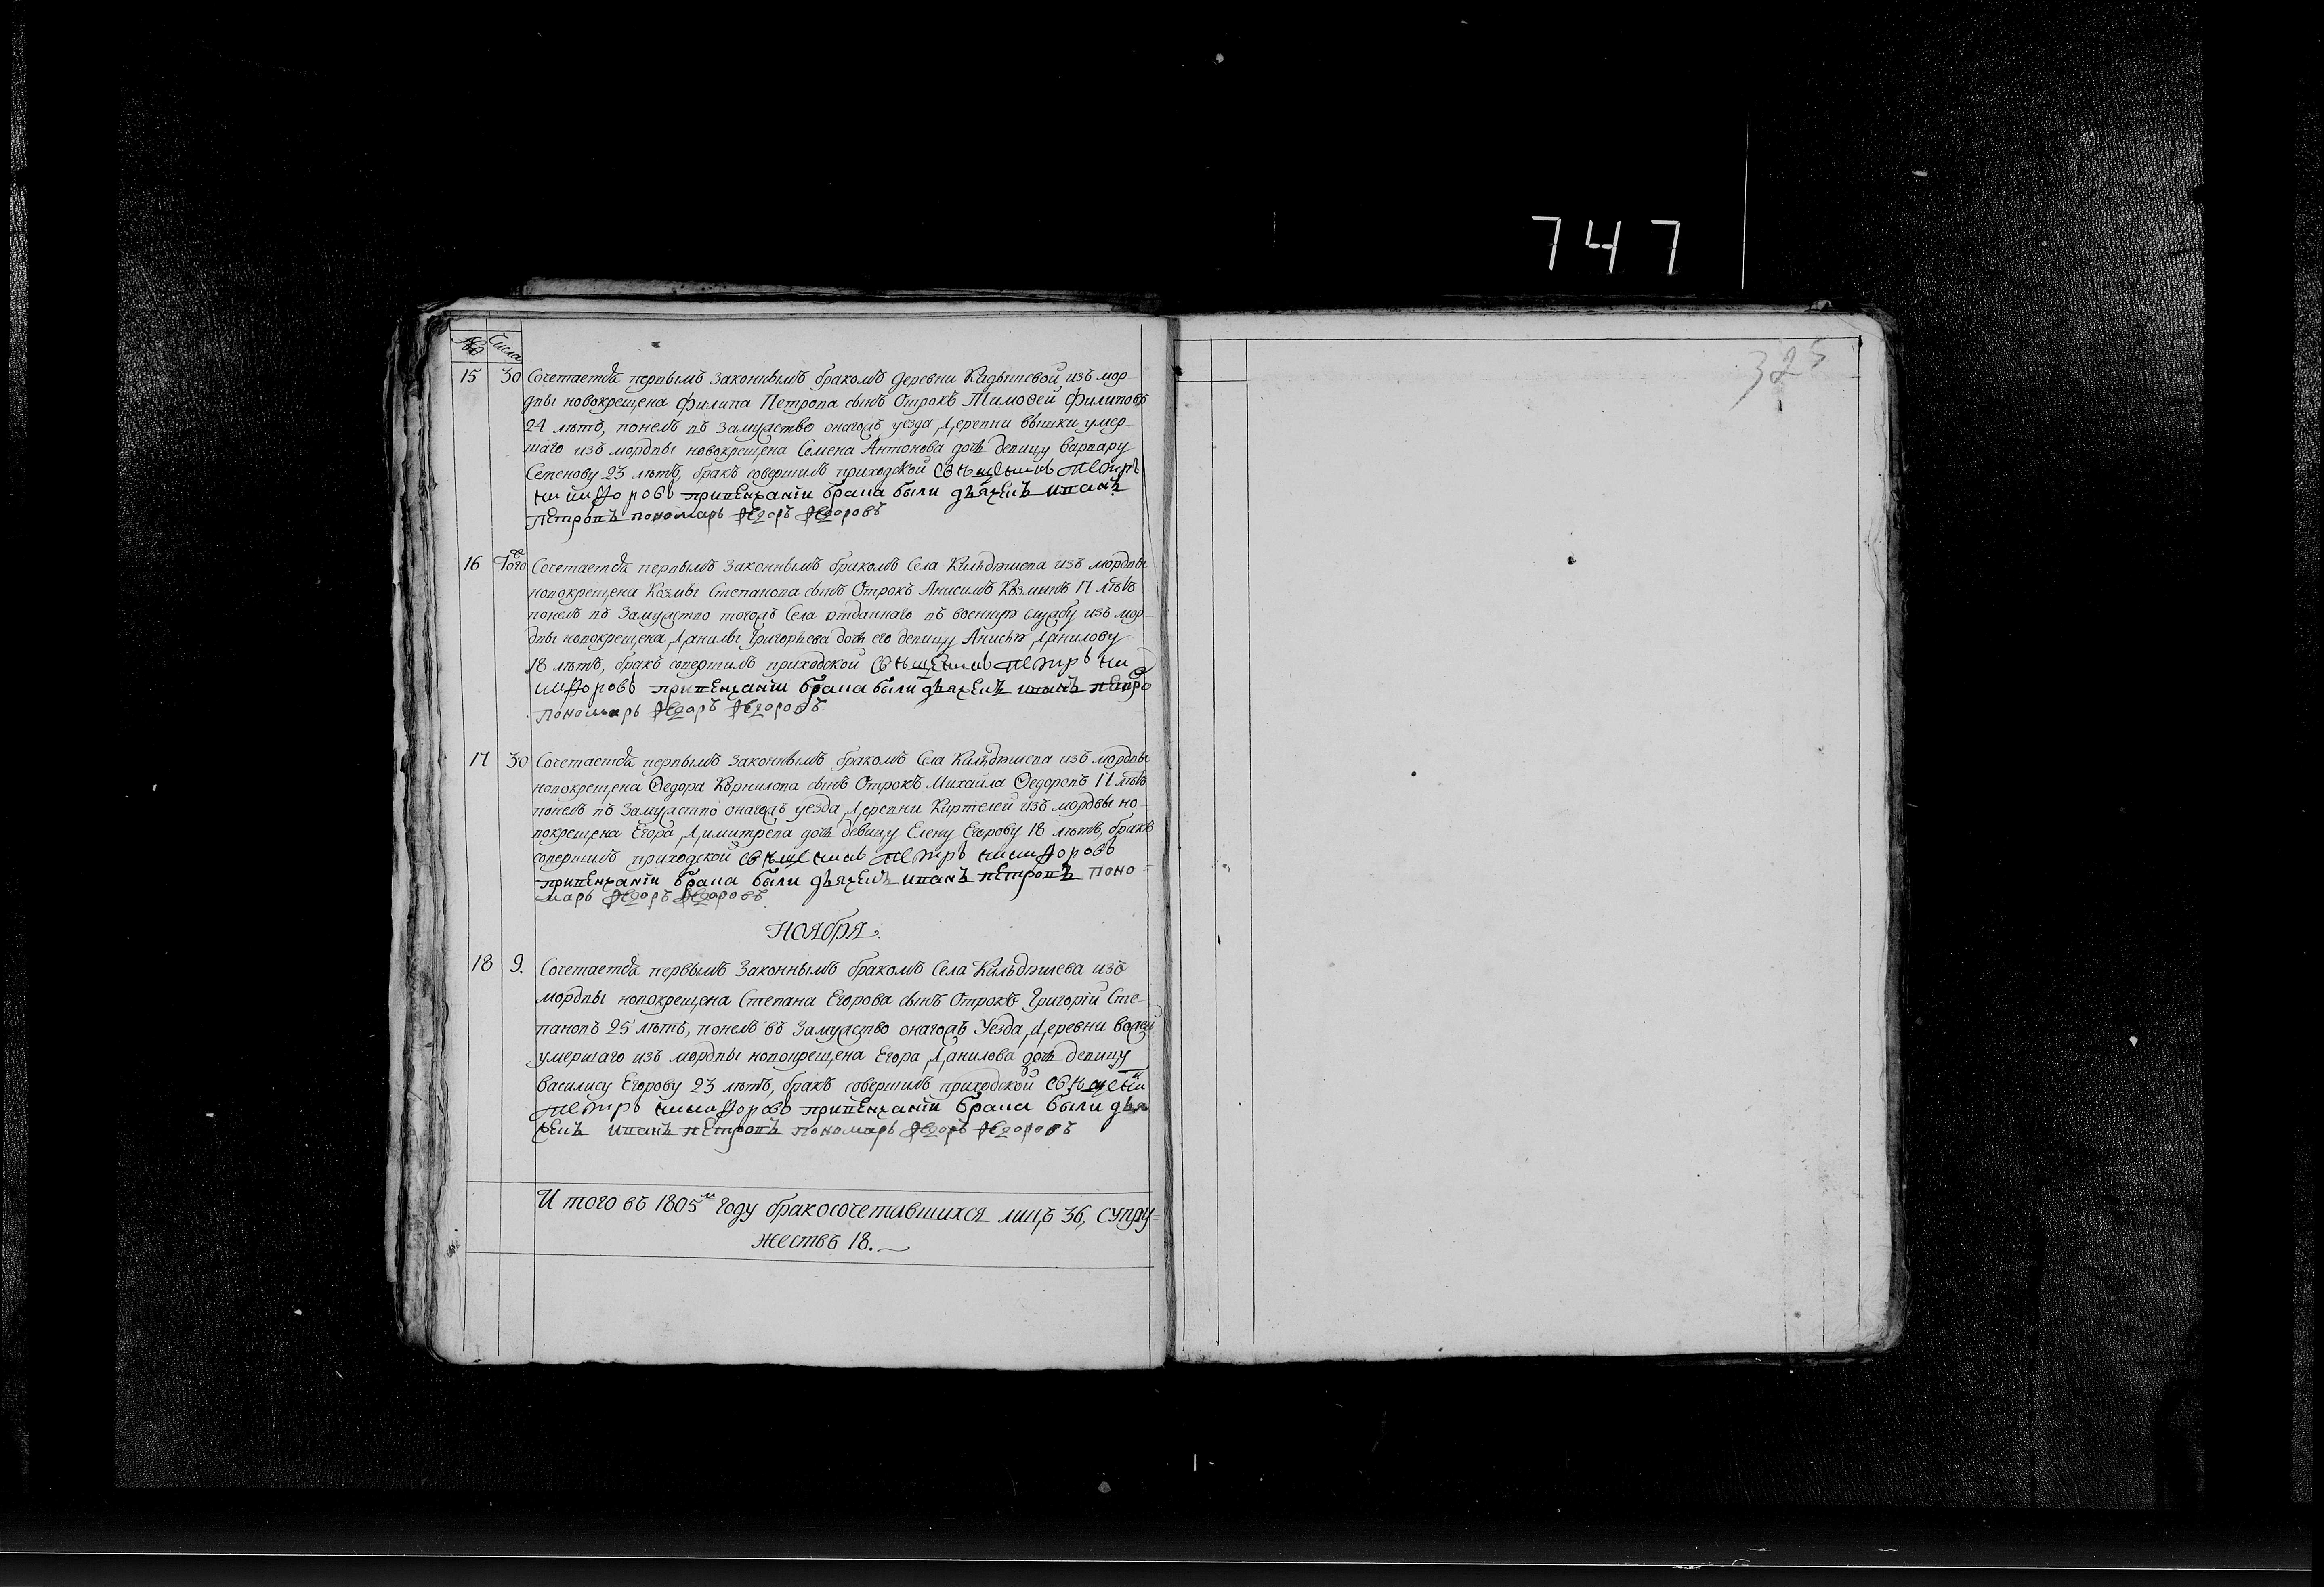 747
325
№ Числа
15 30 Сочетается первымъ законнымъ бракомъ деревни Кадышевой изъ мор
двы новокрещена Филипа Петрова сынъ Отрокъ Тимофей Филиповъ
24 лѣтъ, понелъ въ замужство онагожъ уезда Деревни вышки умер
шаго изъ мордвы новокрещена Семена Антонова дочь девицу варвару
Семенову 23 лѣтъ, бракъ совершилъ приходской свѣщеникъ Петръ
никифоровъ привенчании брака были дьяченъ иванъ
петровъ пономарь федоръ федоровъ
16 Того Сочетается первымъ законнымъ бракомъ Села Кильдюшева изъ мордвы
новокрещена Козмы Степанова сынъ Отрокъ Анисимъ Козминъ 17 лѣтъ
понелъ въ замужство тогожъ Села отданнаго въ военную службу изъ мор
двы новокрещена Данилы Григорьева дочь его девицу Анисью Данилову
18 лѣтъ, бракъ совершилъ приходской свѣщеникъ Петръ ни
кифоровъ привенчании брака были дьяченъ иванъ петро
пономарь федоръ федоровъ
17 30 Сочетается первымъ законнымъ бракомъ Села Кильдюшева изъ мордвы
новокрещена Федора Корнилова сынъ Отрокъ Михайла Федоровъ 17 лѣтъ
понелъ въ замужство онагожъ уезда Деревни Киртелей изъ мордвы но
вокрещена Егора Димитрева дочь девицу Елену Егорову 18 лѣтъ, бракъ
совершилъ приходской свѣщеникъ Петръ никифоровъ
привенчании брака были дьяченъ иванъ петровъ поно
марь федоръ федоровъ
НОЯбрЯ.
18 9. Сочетается первымъ законнымъ бракомъ Села Кильдюшева изъ
мордвы новокрещена Степана Егорова сынъ Отрокъ Григорій Сте
пановъ 25 лѣтъ, понелъ въ замужство онагожъ Уезда Деревни
умершаго изъ мордвы новокрещена Егора Данилова дочь девицу
василису Егорову 23 лѣтъ, бракъ совершилъ приходской свѣщени
Петръ никифоровъ привенчании брака были дья
ченъ иванъ петровъ пономарь федоръ федоровъ
И того въ 1805м году бракосочетавшихся лицъ 36, супру
жествъ 18.